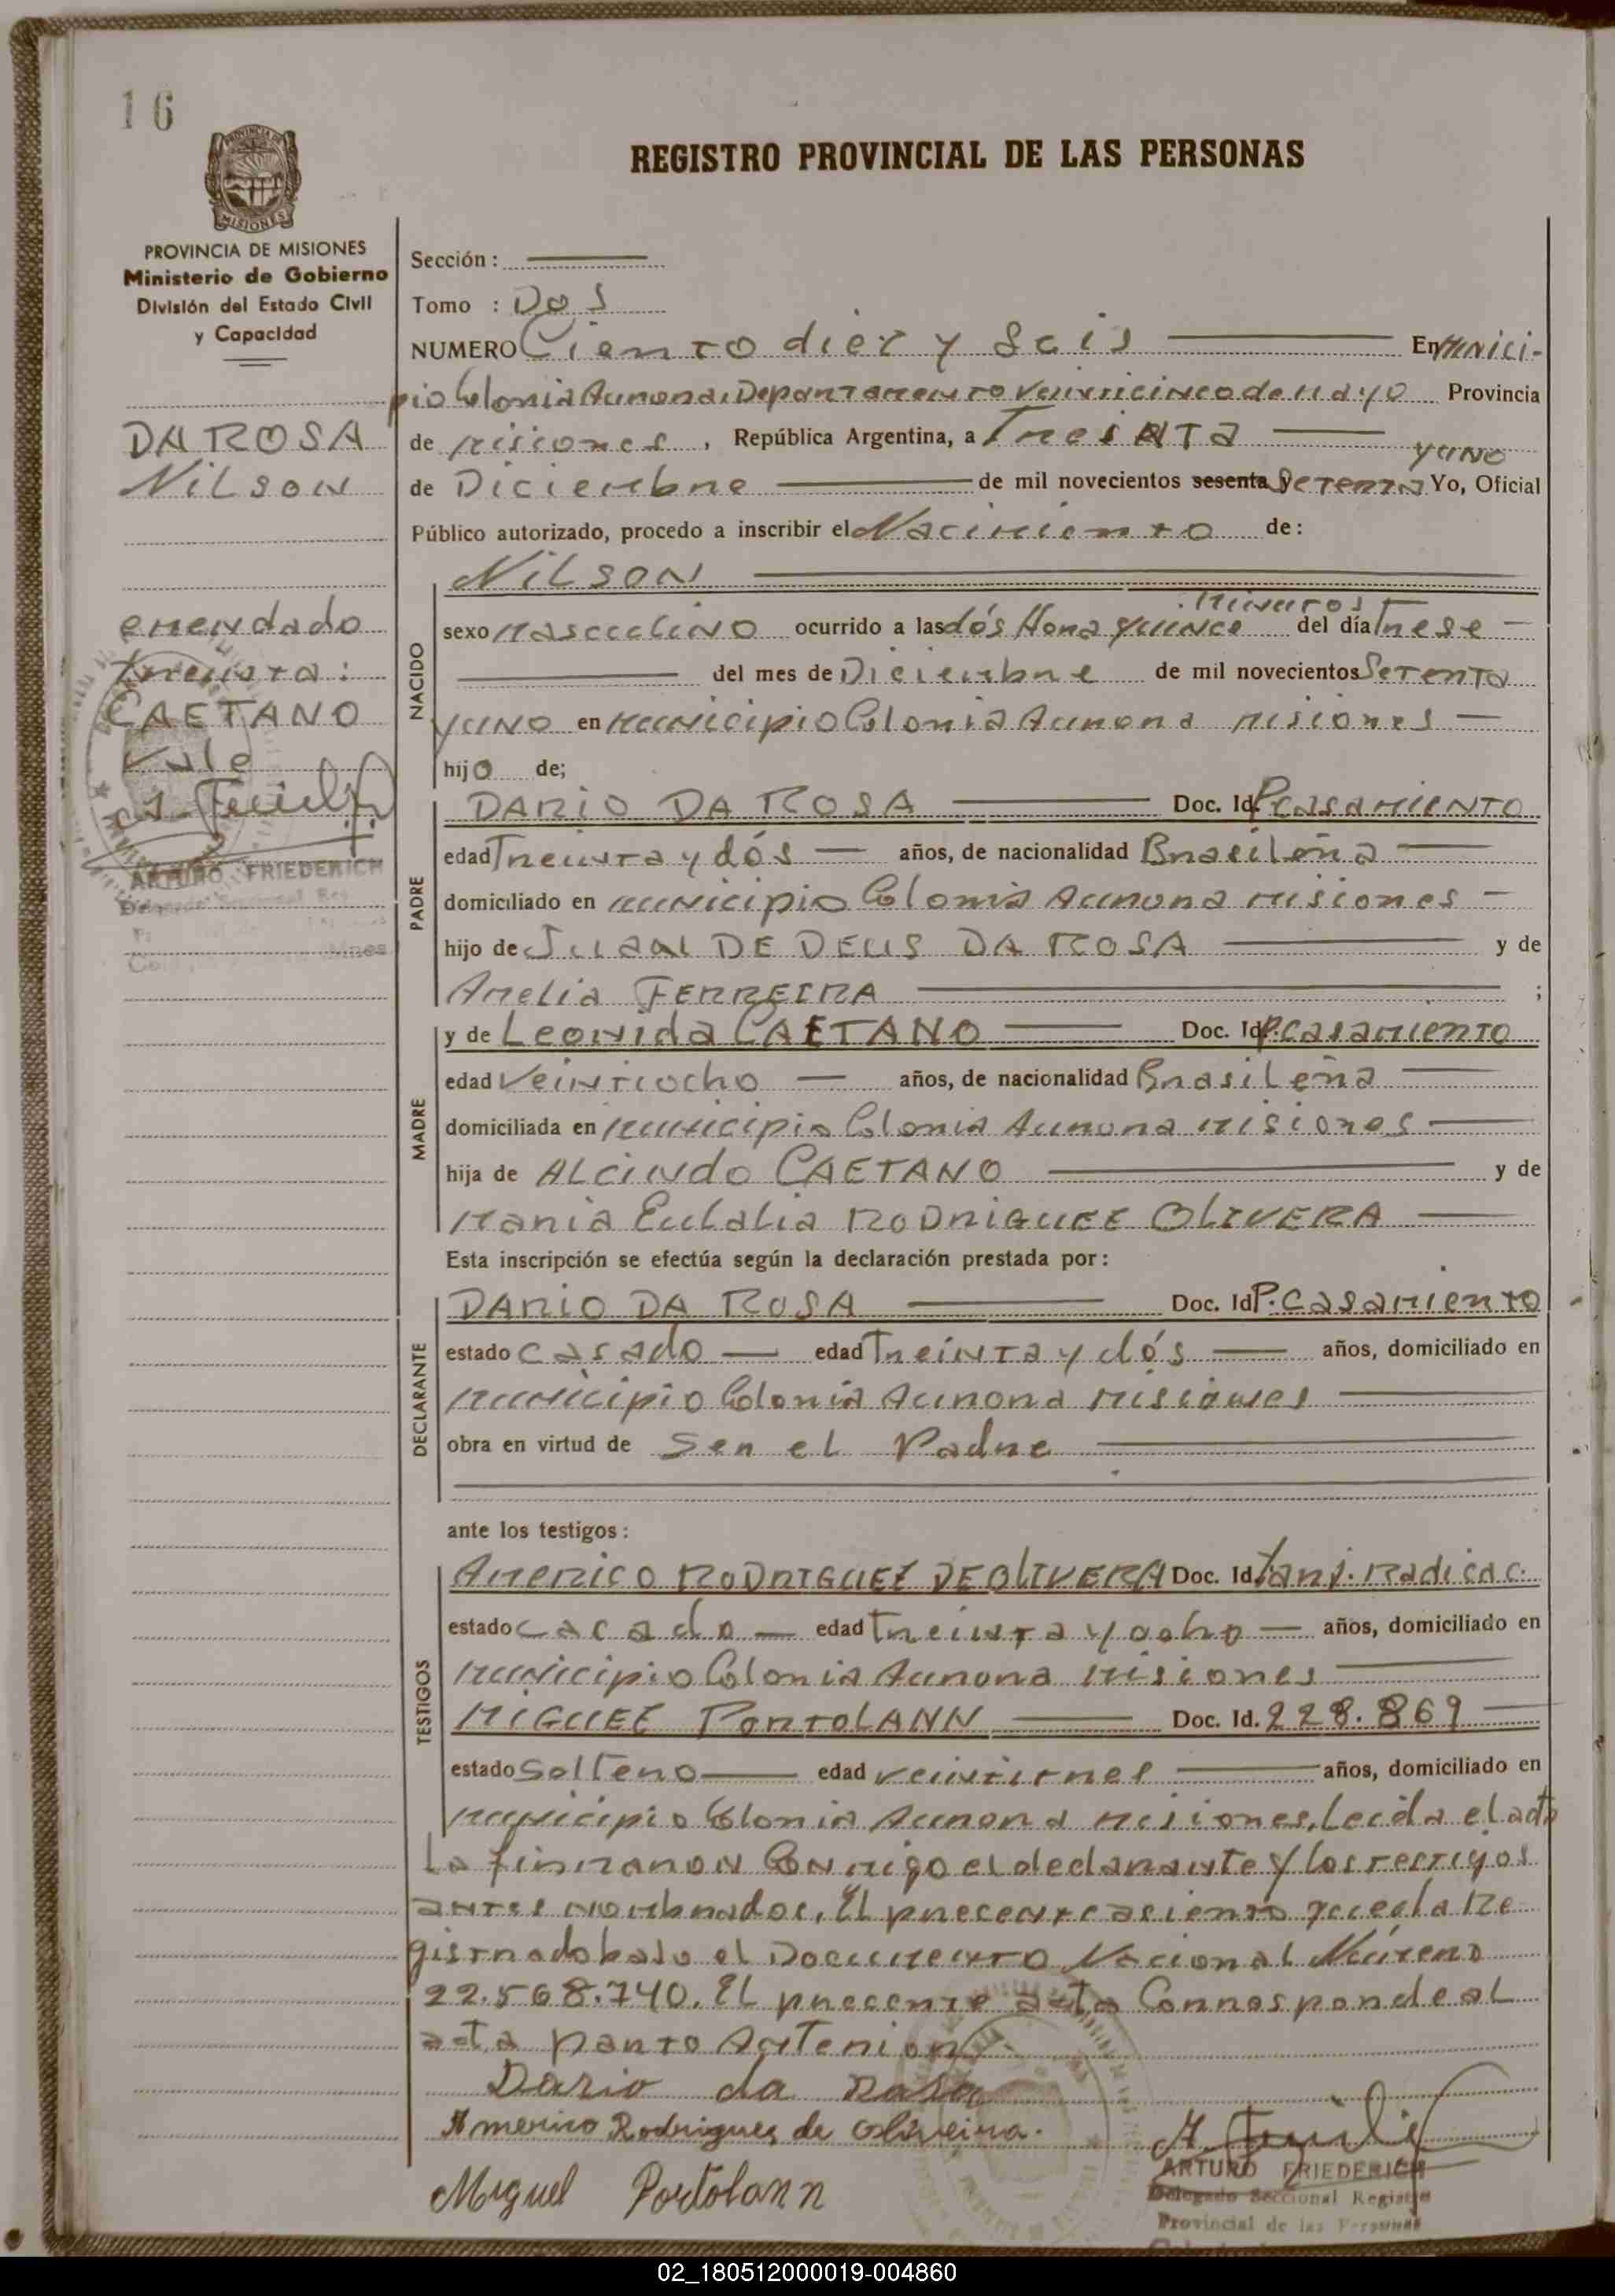 16
PROVINCIA DE MISIONES
MISIONES
PROVINCIA DE MISIONES
Ministerio de Gobierno
División del Estado Civil
y Capacidad
REGISTRO PROVINCIAL DE LAS PERSONAS
Sección :
Tomo : Dos
NUMERO Ciento diez y Seis En Munici-
pio Colonia Aurora, Departamento Veinticinco de Mayo Provincia
de Misiones, República Argentina, a Treinta
y uno
de Diciembre de mil novecientos sesenta y Setenta Yo, Oficial
Público autorizado, procedo a inscribir el Nacimiento de:
DA ROSA
Nilson
NACIDO
Nilson
minutos
sexo Masculino ocurrido a las dós Hora quince del día Trese
del mes de Diciembre de mil novecientos Setenta
y uno en Municipio Colonia Aurora Misiones
hijo de;
emendado
treinta:
CAETANO
Vale
ARTURO FRIEDERICH
PADRE
DARIO DA ROSA Doc. Id. P. Casamiento
edad Treinta y dós años, de nacionalidad Brasileña
domiciliado en Municipio Colonia Aurora Misiones
hijo de Juan DE DEUS DA ROSA y de
Amelia FERREIRA ;
MADRE
y de Leonida CAETANO Doc. Id. P. Casamiento
edad Veintiocho años, de nacionalidad Brasileña
domiciliada en Municipio Colonia Aurora Misiones
hija de Alcindo CAETANO y de
Maria Eulalia RODRIGUEZ OLIVERA
Esta inscripción se efectúa según la declaración prestada por :
DECLARANTE
DARIO DA ROSA Doc. Id. P. Casamiento
estado Casado edad Treinta y dós años, domiciliado en
Municipio Colonia Aurora Misiones
obra en virtud de Ser el Padre
ante los testigos :
TESTIGOS
AMERICO RODRIGUEZ DE OLIVERA Doc. Id. Tarj. Radicac.
estado Casado edad Treinta y ocho años, domiciliado en
Municipio Colonia Aurora Misiones
MIGUEL PORTOLANN Doc. Id. 228.869
estado Soltero edad veintitres años, domiciliado en
Municipio Colonia Aurora Misiones, Leida el acta
La firmaron Conmigo el declarante y los testigos
antes nombrados, El presente asiento queda Re
gistrado bajo el Documento Nacional Número
22.568.740. El presente acta Corresponde al
acta parto Anterior.
Dario da Rosa
Americo Rodrigues de Oliveira.
Miguel Portolann
ARTURO FRIEDERICH
Delegado Seccional Registro
Provincial de las Personas
02_180512000019-004860